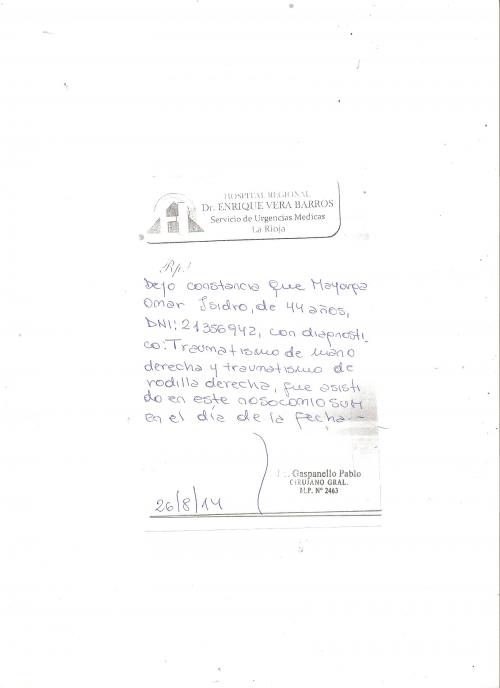 HOSPITAL REGIONAL
Dr. ENRIQUE VERA BARROS
Servicio de Urgencias Medicas
La Rioja
Rp.
Dejo constancia que Mayorga
Omar Isidro, de 44 años,
DNI: 21356942, con diagnosti-
co: Traumatismo de mano
derecha y traumatismo de
rodilla derecha, fue asisti
do en este nosocomio SUM
en el día de la fecha.-
Gaspanello Pablo
CIRUJANO GRAL.
M.P. Nº 2463
26/8/14